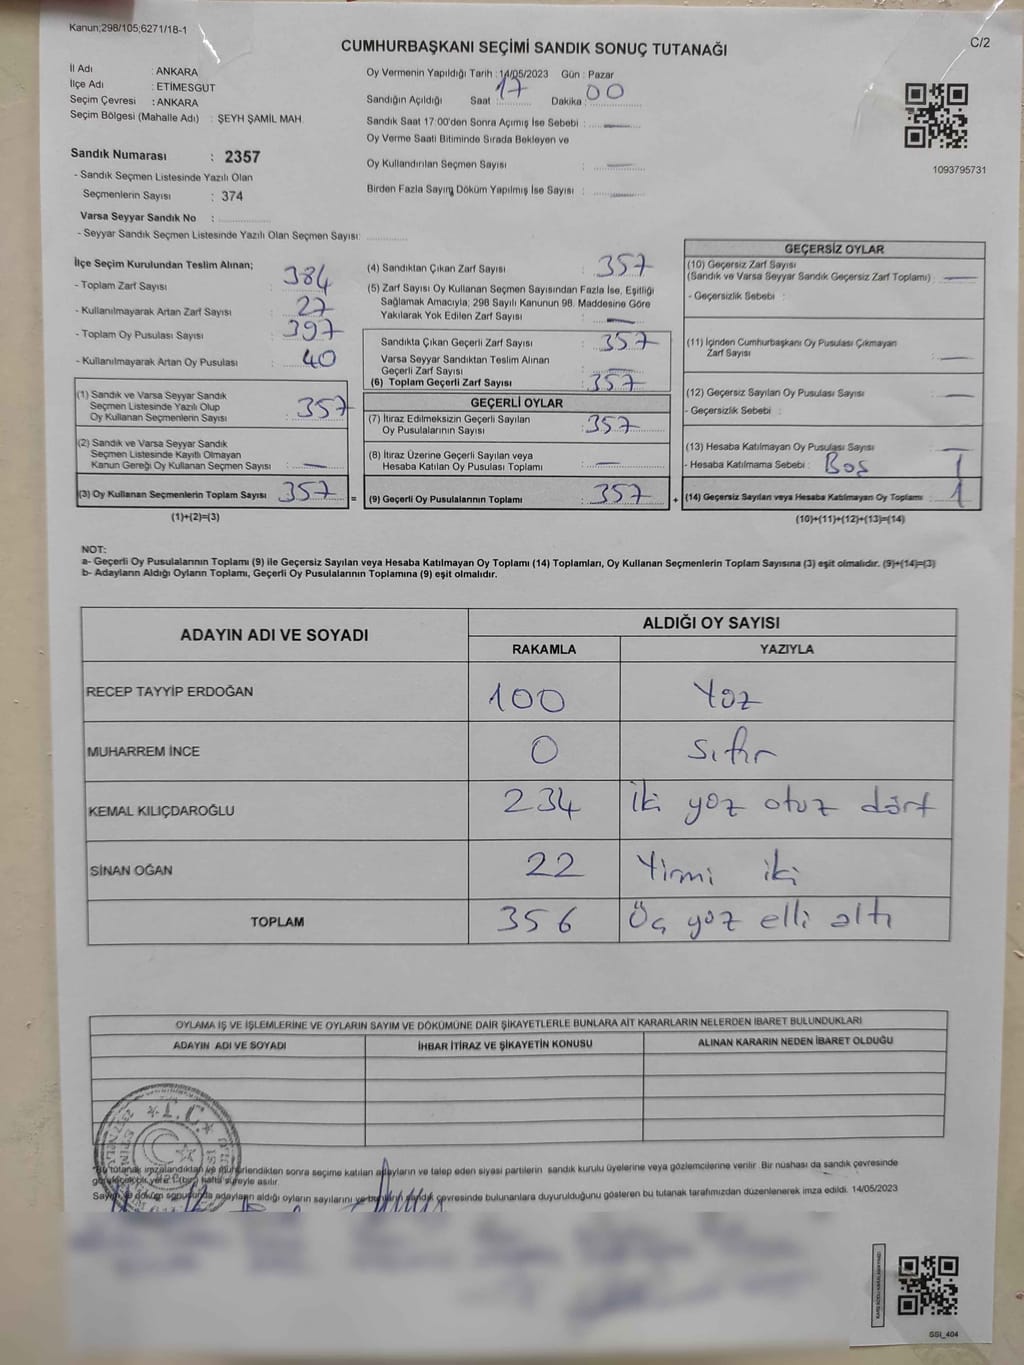 Kanun;298/105,6271/18-1
C/2
CUMHURBAŞKANI SEÇİMİ SANDIK SONUÇ TUTANAĞI
İl Adı : ANKARA
İlçe Adı : ETİMESGUT
Seçim Çevresi : ANKARA
Seçim Bölgesi (Mahalle Adı) : ŞEYH ŞAMİL MAH.
Sandık Numarası : 2357
- Sandık Seçmen Listesinde Yazılı Olan
Seçmenlerin Sayısı : 374
Varsa Seyyar Sandık No :
- Seyyar Sandık Seçmen Listesinde Yazılı Olan Seçmen Sayısı:
Oy Vermenin Yapıldığı Tarih : 14/05/2023 Gün : Pazar
Sandığın Açıldığı Saat 17 Dakika : 00
Sandık Saat 17:00'den Sonra Açımış İse Sebebi : —
Oy Verme Saati Bitiminde Sırada Bekleyen ve
Oy Kullandırılan Seçmen Sayısı : —
Birden Fazla Sayım Döküm Yapılmış İse Sayısı : —
1093795731
İlçe Seçim Kurulundan Teslim Alınan;
- Toplam Zarf Sayısı : 384
- Kullanılmayarak Artan Zarf Sayısı : 27
- Toplam Oy Pusulası Sayısı : 397
- Kullanılmayarak Artan Oy Pusulası : 40
(1) Sandık ve Varsa Seyyar Sandık
Seçmen Listesinde Yazılı Olup
Oy Kullanan Seçmenlerin Sayısı : 357
(2) Sandık ve Varsa Seyyar Sandık
Seçmen Listesinde Kayıtlı Olmayan
Kanun Gereği Oy Kullanan Seçmen Sayısı : —
(3) Oy Kullanan Seçmenlerin Toplam Sayısı : 357 =
(1)+(2)=(3)
(4) Sandıktan Çıkan Zarf Sayısı : 357
(5) Zarf Sayısı Oy Kullanan Seçmen Sayısından Fazla İse, Eşitliği
Sağlamak Amacıyla; 298 Sayılı Kanunun 98. Maddesine Göre
Yakılarak Yok Edilen Zarf Sayısı : —
Sandıkta Çıkan Geçerli Zarf Sayısı : 357
Varsa Seyyar Sandıktan Teslim Alınan
Geçerli Zarf Sayısı :
(6) Toplam Geçerli Zarf Sayısı : 357
GEÇERLİ OYLAR
(7) İtiraz Edilmeksizin Geçerli Sayılan
Oy Pusulalarının Sayısı : 357
(8) İtiraz Üzerine Geçerli Sayılan veya
Hesaba Katılan Oy Pusulası Toplamı : —
(9) Geçerli Oy Pusulalarının Toplamı : 357 +
GEÇERSİZ OYLAR
(10) Geçersiz Zarf Sayısı
(Sandık ve Varsa Seyyar Sandık Geçersiz Zarf Toplamı) : —
- Geçersizlik Sebebi :
(11) İçinden Cumhurbaşkanı Oy Pusulası Çıkmayan
Zarf Sayısı : —
(12) Geçersiz Sayılan Oy Pusulası Sayısı : —
- Geçersizlik Sebebi :
(13) Hesaba Katılmayan Oy Pusulası Sayısı : —
- Hesaba Katılmama Sebebi : Boş 1
(14) Geçersiz Sayılan veya Hesaba Katılmayan Oy Toplamı : 1
(10)+(11)+(12)+(13)=(14)
NOT:
a- Geçerli Oy Pusulalarının Toplamı (9) ile Geçersiz Sayılan veya Hesaba Katılmayan Oy Toplamı (14) Toplamları, Oy Kullanan Seçmenlerin Toplam Sayısına (3) eşit olmalıdır. (9)+(14)=(3)
b- Adayların Aldığı Oyların Toplamı, Geçerli Oy Pusulalarının Toplamına (9) eşit olmalıdır.
ADAYIN ADI VE SOYADI
ALDIĞI OY SAYISI
RAKAMLA YAZIYLA
RECEP TAYYİP ERDOĞAN 100 Yüz
MUHARREM İNCE 0 sıfır
KEMAL KILIÇDAROĞLU 234 İki yüz otuz dört
SİNAN OĞAN 22 Yirmi iki
TOPLAM 356 Üç yüz elli altı
OYLAMA İŞ VE İŞLEMLERİNE VE OYLARIN SAYIM VE DÖKÜMÜNE DAİR ŞİKAYETLERLE BUNLARA AİT KARARLARIN NELERDEN İBARET BULUNDUKLARI
ADAYIN ADI VE SOYADI İHBAR İTİRAZ VE ŞİKAYETİN KONUSU ALINAN KARARIN NEDEN İBARET OLDUĞU
T.C.
Bu tutanak imzalandıktan ve mühürlendikten sonra seçime katılan adayların ve talep eden siyasi partilerin sandık kurulu üyelerine veya gözlemcilerine verilir. Bir nüshası da sandık çevresinde
yere 1 (bir) hafta süreyle asılır.
Sayım ve döküm sonucunda adayların aldığı oyların sayılarını ve sandık çevresinde bulunanlara duyurulduğunu gösteren bu tutanak tarafımızdan düzenlenerek imza edildi. 14/05/2023
SSI_404